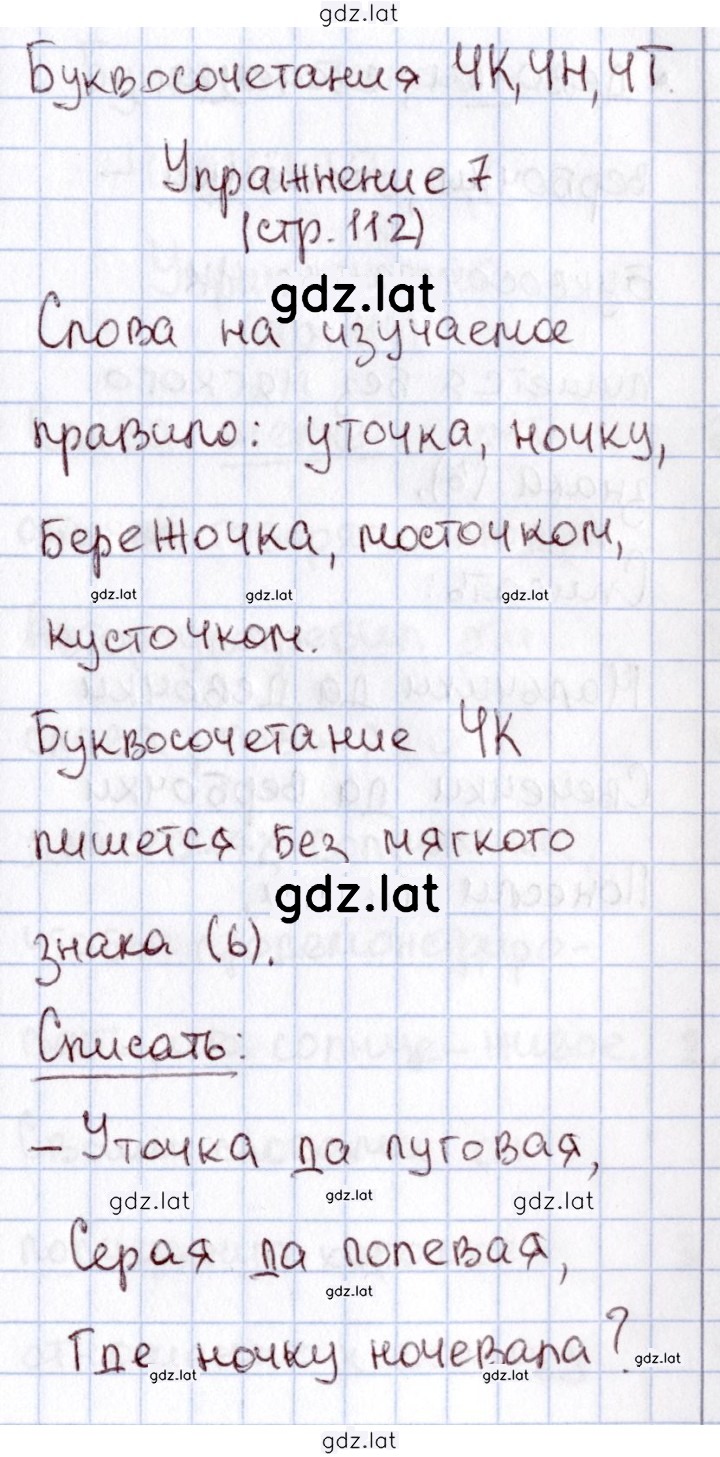 gdz.lat
Буквосочетания ЧК, ЧН, ЧТ.
Упражнение 7
(стр. 112)
gdz.lat
Слова на изучаемое
правило: уточка, ночку,
бережочка, мосточком,
gdz.lat gdz.lat gdz.lat
кусточком.
Буквосочетание ЧК
пишется без мягкого
gdz.lat
знака (ь).
Списать:
– Уточка да луговая,
gdz.lat gdz.lat gdz.lat
Серая да полевая,
gdz.lat
Где ночку ночевала?
gdz.lat gdz.lat gdz.lat
gdz.lat